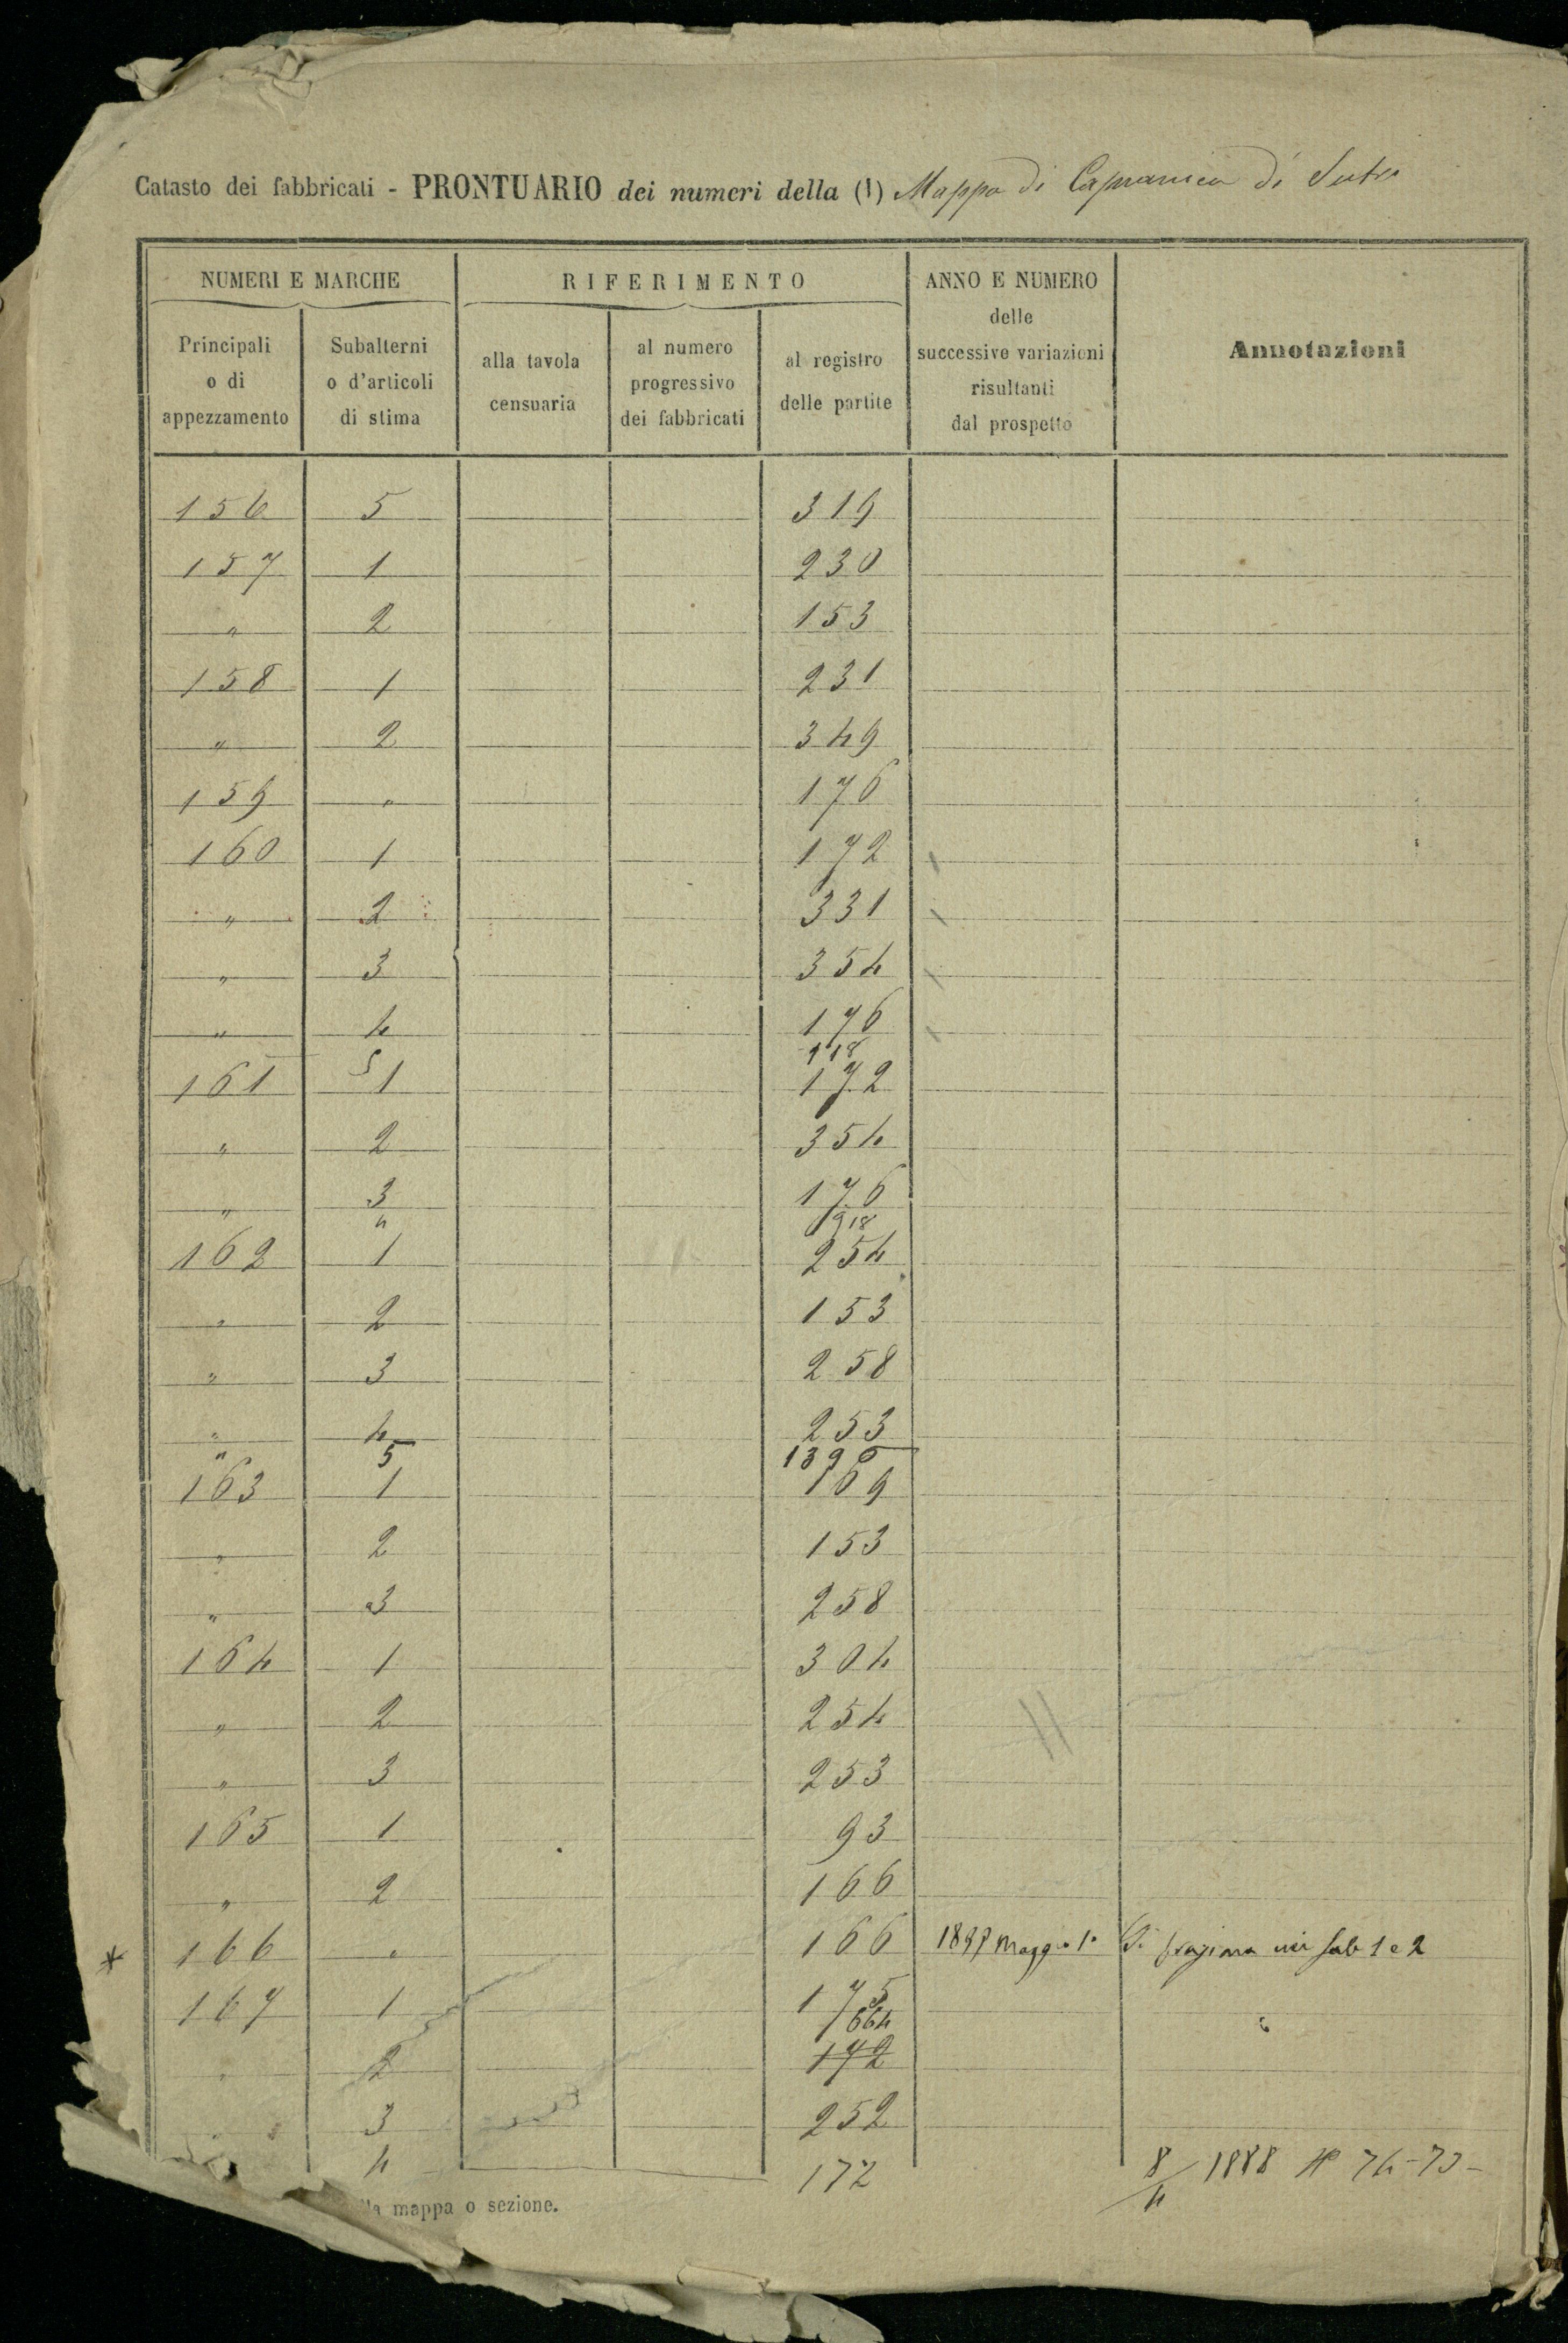 Catasto dei fabbricati - PRONTUARIO dei numeri della (1) Mappa di Capranica di Sutri
NUMERI E MARCHE
RIFERIMENTO
ANNO E NUMERO delle successive variazioni risultanti dal prospetto
Annotazioni
Principali o di appezzamento
Subalterni o d'articoli di stima
alla tavola censuaria
al numero progressivo dei fabbricati
al registro delle partite
156 5 319
157 1 230
" 2 153
158 1 231
" 2 349
159 " 176
160 1 172
" 2 331
" 3 354
" 4 176
5 918
161 1 172
" 2 354
" 3 176
4 918
162 1 254
" 2 153
" 3 258
" 4 253
" 5 1390
163 1 169
" 2 153
" 3 258
164 1 304
" 2 254
" 3 253
165 1 93
" 2 166
* 166 " 166 1897 Maggio 1° Si fraziona nei sub 1 e 2
167 1 175
664
" 2 172
" 3 252
4 172 8/4 1888 N° 74-73-
mappa o sezione.